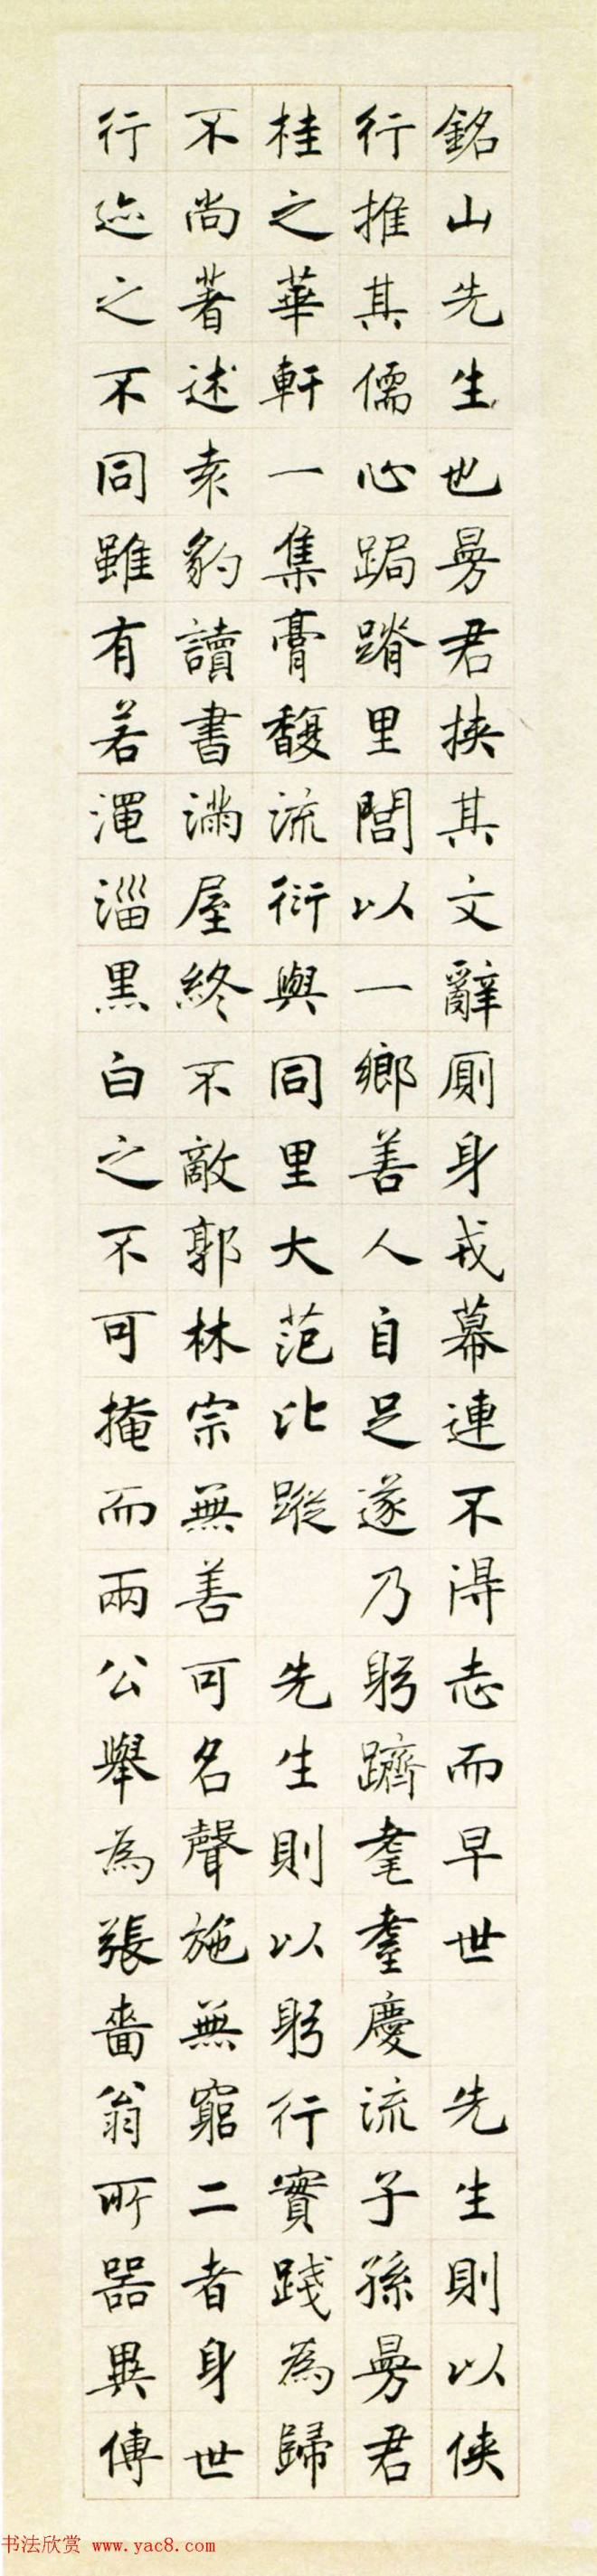 銘山先生也曼君挾其文辭厠身戎幕連不淂志而早世　先生則以俠
行推其儒心跼蹐里閭以一鄉善人自足遂乃躬躋耄耋慶流子孫曼君
桂之華軒一集膏馥流衍與同里大范比蹤　先生則以躬行實踐為歸
不尚著述袁豹讀書滿屋終不敵郭林宗無善可名聲施無窮二者身世
行迹之不同雖有若澠淄黑白之不可掩而兩公舉為張嗇翁所器異傳
书法欣赏 www.yac8.com